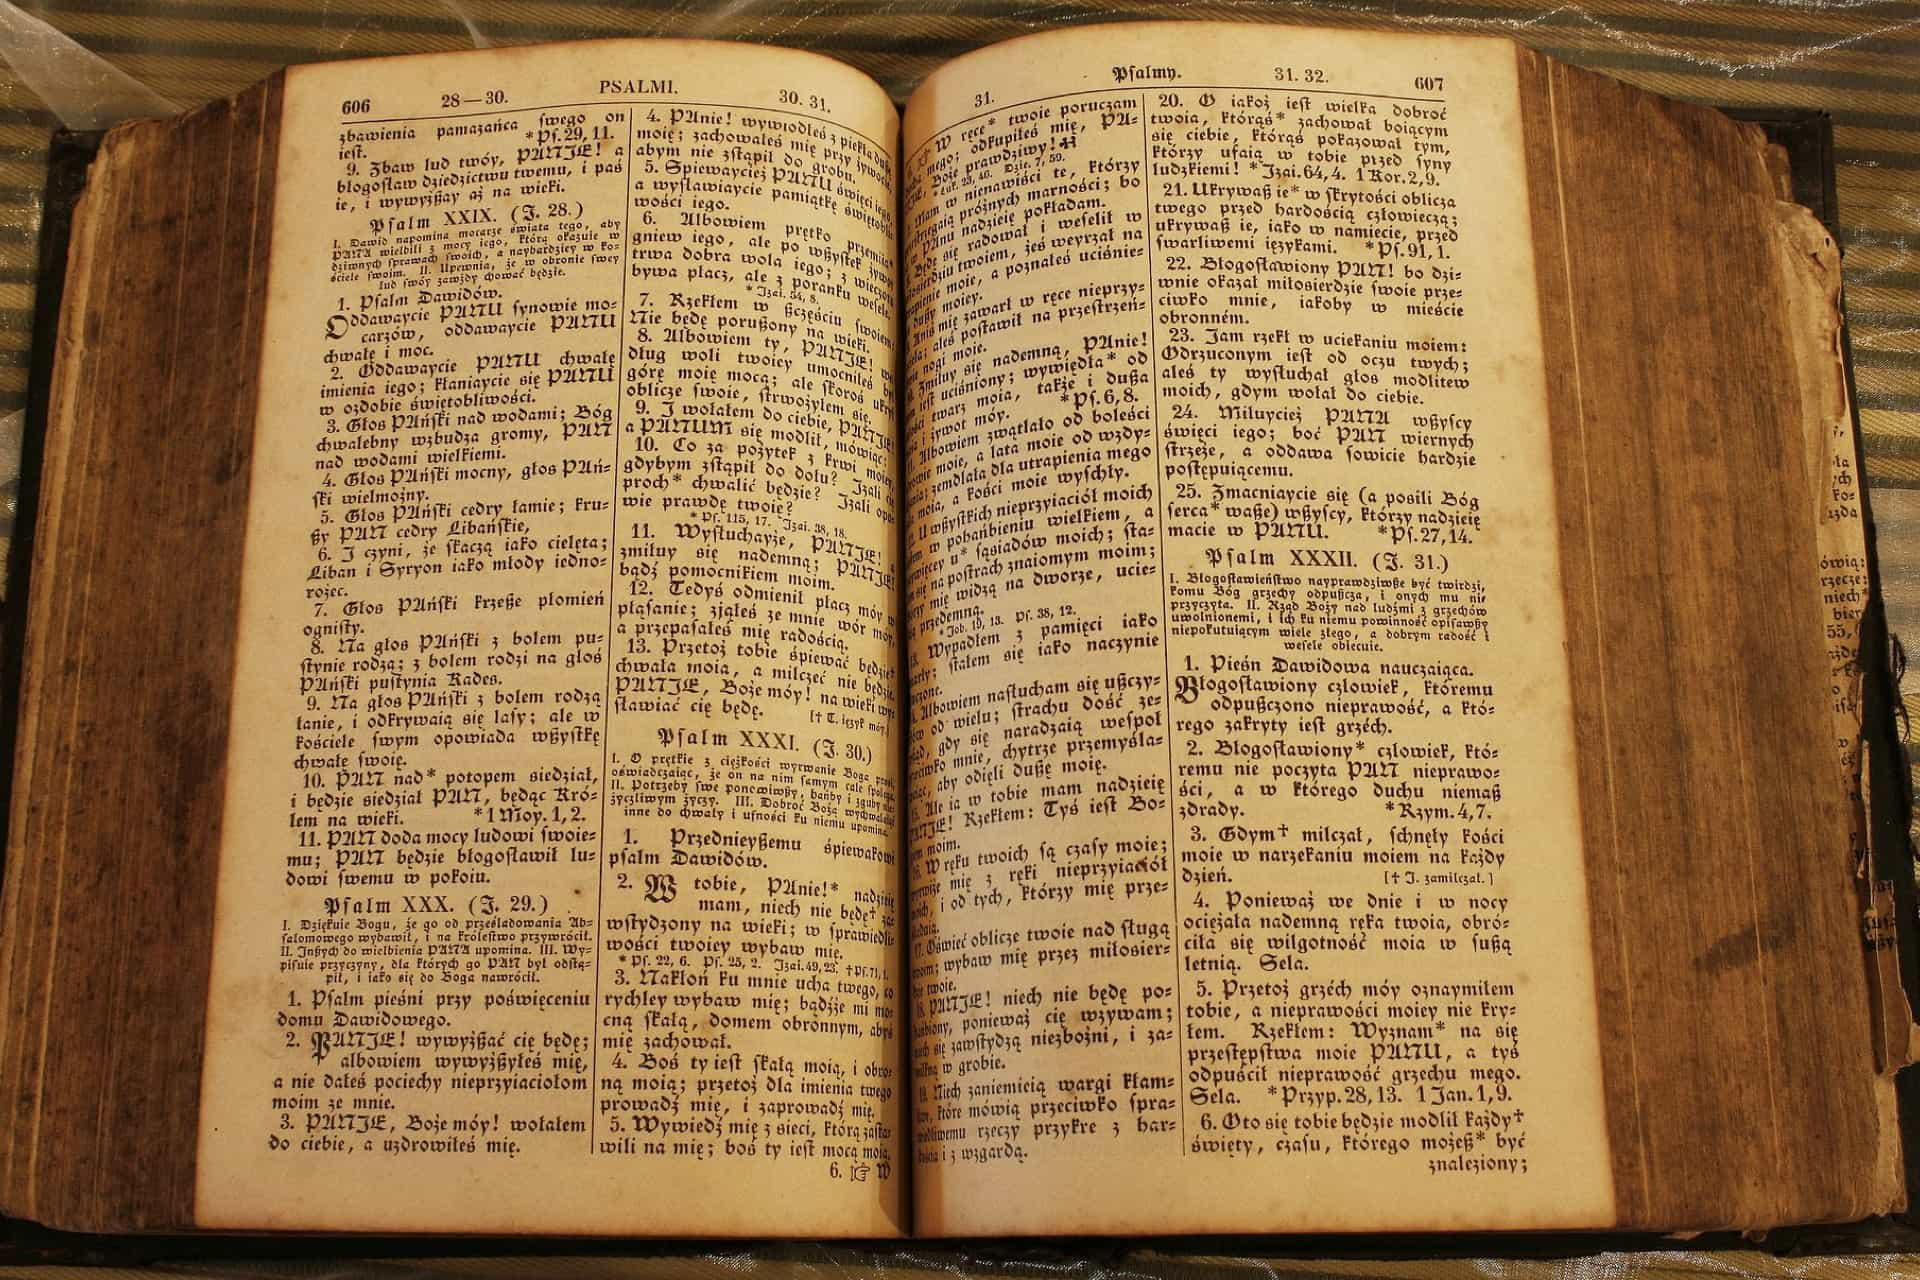 606 28—30. PSALMI. 30. 31.
zbawienia pamazańca swego on
jest. *Ps. 29, 11.
9. Zbaw lud twóy, PANJE! a
błogosław dziedzictwu twemu, i paś
ie, i wywyżßay aż na wieki.
Psalm XXIX. (J. 28.)
I. Dawid napomina mocarze świata tego, aby
PANA wielbili z mocy iego, którą okazuie w
dziwnych sprawach swoich, a naybardziey w ko-
ściele swoim. II. Upewnia, że w obronie swey
lud swóy zawżdy chować będzie.
1. Psalm Dawidów.
Oddawaycie PANU synowie mo-
carzów, oddawaycie PANU
chwałę i moc.
2. Oddawaycie PANU chwałę
imienia iego; kłaniaycie się PANU
w ozdobie świętobliwości.
3. Głos PAński nad wodami; Bóg
chwalebny wzbudza gromy, PAN
nad wodami wielkiemi.
4. Głos PAński mocny, głos PAń-
ski wielmożny.
5. Głos PAński cedry łamie; kru-
ßy PAN cedry Libańskie,
6. J czyni, że skaczą iako cielęta;
Liban i Syryon iako młody iedno-
rożec.
7. Głos PAński krzeße płomień
ognisty.
8. Na głos PAński z bolem pu-
stynie rodzą; z bolem rodzi na głos
PAński pustynia Kades.
9. Na głos PAński z bolem rodzą
łanie, i odkrywaią się lasy; ale w
kościele swym opowiada wßystkę
chwałę swoię.
10. PAN nad* potopem siedział,
i będzie siedział PAN, będąc Kró-
lem na wieki. *1 Moy. 1, 2.
11. PAN doda mocy ludowi swoie-
mu; PAN będzie błogosławił lu-
dowi swemu w pokoiu.
Psalm XXX. (J. 29.)
I. Dziękuie Bogu, że go od prześladowania Ab-
salomowego wybawił, i na królestwo przywrócił.
II. Jnßych do wielbienia PANA upomina. III. Wy-
pisuie przyczyny, dla których go PAN był odstą-
pił, i iako się do Boga nawrócił.
1. Psalm pieśni przy poświęceniu
domu Dawidowego.
2. PANJE! wywyżßać cię będę;
albowiem wywyżßyłeś mię,
a nie dałeś pociechy nieprzyiaciołom
moim ze mnie.
3. PANJE, Boże móy! wołałem
do ciebie, a uzdrowiłeś mię.
4. PAnie! wywiodłeś z piekła dußę
moię; zachowałeś mię przy żywocie,
abym nie zstąpił do grobu.
5. Spiewaycież PANU święci iego,
a wysławiaycie pamiątkę świętobli-
wości iego.
6. Albowiem prętko przemija*
gniew iego, ale po wßystek żywot
trwa dobra wola iego; z wieczora
bywa płacz, ale z poranku wesele.
* Jzai. 54, 8.
7. Rzekłem w ßczęściu swoiem:
Nie będę porußony na wieki.
8. Albowiem ty, PANJE!
dług woli twoiey umocniłeś
górę moię mocą; ale skoroś ukrył
oblicze swoie, strwożyłem się.
9. J wołałem do ciebie, PANJE!
a PANUM się modlił, mówiąc:
10. Co za pożytek z krwi moiey,
gdybym zstąpił do dołu? Jzali cię
proch* chwalić będzie? Jzali opo-
wie prawdę twoię?
* Ps. 115, 17. Jzai. 38, 18.
11. Wysłuchayże, PANJE!
zmiłuy się nademną; PANJE!
bądź pomocnikiem moim.
12. Tedyś odmienił płacz móy w
pląsanie; zjąłeś ze mnie wór móy,
a przepasałeś mię radością.
13. Przetoż tobie śpiewać będzie†
chwała moia, a milczeć nie będzie.
PANJE, Boże móy! na wieki wy-
sławiać cię będę. [† T. ięzyk móy.]
Psalm XXXI. (J. 30.)
I. O prętkie z ciężkości wyrwanie Boga prosi,
oświadczaiąc, że on na nim samym całe spolega.
II. Potrzeby swe ponowiwßy, hańby i zguby nie-
życzliwym życzy. III. Dobroć Bożą wychwalając,
inne do chwały i ufności ku niemu upomina.
1. Przednieyßemu śpiewakowi
psalm Dawidów.
2. W tobie, PAnie!* nadzieię
mam, niech nie będę† za-
wstydzony na wieki; w sprawiedli-
wości twoiey wybaw mię.
* Ps. 22, 6. Ps. 25, 2. Jzai. 49, 23. †Ps. 71, 1.
3. Nakłoń ku mnie ucha twego, co
rychley wybaw mię; bądźże mi mo-
cną skałą, domem obronnym, abyś
mię zachował.
4. Boś ty iest skałą moią, i obro-
ną moią; przetoż dla imienia twego
prowadź mię, i zaprowadź mię.
5. Wywiedź mię z sieci, którą zasta-
wili na mię; boś ty iest mocą moią,
6. ☞ W
31. Psalmy. 31. 32. 607
W ręce* twoie poruczam
mego; odkupiłeś mię, PA-
Boże prawdziwy!
* Łuk. 23, 46. Dzie. 7, 59.
Mam w nienawiści te, którzy
przestrzegaią próżnych marności; bo
w PAnu nadzieię pokładam.
Będę się radował i weselił w
miłosierdziu twoiem, żeś weyrzał na
utrapienie moie, a poznałeś uciśnie-
dußy moiey.
Aniś mię zawarł w ręce nieprzy-
aleś postawił na przestrzeń-
nogi moie.
Zmiłuy się nademną, PAnie!
iest uciśniony; wywiędła* od
twarz moia, także i dußa
i żywot móy. *Ps. 6, 8.
Albowiem zwątlało od boleści
moie, a lata moie od wzdy-
zemdlała dla utrapienia mego
moia, a kości moie wyschły.
U wßystkich nieprzyiaciół moich
w pohańbieniu wielkiem, a
u* sąsiadów moich; sta-
się na postrach znaiomym moim;
mię widzą na dworze, ucie-
przedemną.
* Job. 19, 13. Ps. 38, 12.
Wypadłem z pamięci iako
stałem się iako naczynie
Albowiem nasłucham się ußczy-
od wielu; strachu dość ze-
gdy się naradzaią wespoł
mnie, chytrze przemyśla-
aby odięli dußę moię.
Ale ia w tobie mam nadzieię
PANJE! Rzekłem: Tyś iest Bo-
moim.
16. W ręku twoich są czasy moie;
mię z ręki nieprzyiaciół
i od tych, którzy mię prze-
17. Oświeć oblicze twoie nad sługą
twoim; wybaw mię przez miłosier-
twoie.
18. PANJE! niech nie będę po-
hańbiony, ponieważ cię wzywam;
niech się zawstydzą niezbożni, i za-
w grobie.
19. Niech zaniemieią wargi kłam-
które mówią przeciwko spra-
wiedliwemu rzeczy przykre z har-
i z wzgardą.
20. O iakoż iest wielka dobroć
twoia, którąś* zachował boiącym
się ciebie, którąś pokazował tym,
którzy ufaią w tobie przed syny
ludzkiemi! *Jzai. 64, 4. 1 Kor. 2, 9.
21. Ukrywaß ie* w skrytości oblicza
twego przed hardością człowieczą;
ukrywaß ie, iako w namiecie, przed
swarliwemi ięzykami. *Ps. 91, 1.
22. Błogosławiony PAN! bo dzi-
wnie okazał miłosierdzie swoie prze-
ciwko mnie, iakoby w mieście
obronném.
23. Jam rzekł w uciekaniu moiem:
Odrzuconym iest od oczu twych;
aleś ty wysłuchał głos modlitew
moich, gdym wołał do ciebie.
24. Miłuycież PANA wßyscy
święci iego; boć PAN wiernych
strzeże, a oddawa sowicie hardzie
postępuiącemu.
25. Zmacniaycie się (a posili Bóg
serca* waße) wßyscy, którzy nadzieię
macie w PANU. *Ps. 27, 14.
Psalm XXXII. (J. 31.)
I. Błogosławieństwo nayprawdziwße być twirdzi,
komu Bóg grzechy odpußcza, i onych mu nie
przyczyta. II. Rząd Boży nad ludźmi z grzechów
uwolnionemi, i ich ku niemu powinność opisawßy
niepokutuiącym wiele złego, a dobrym radość i
wesele obiecuie.
1. Pieśń Dawidowa nauczaiąca.
Błogosławiony człowiek, któremu
odpußczono nieprawość, a któ-
rego zakryty iest grzéch.
2. Błogosławiony* człowiek, któ-
remu nie poczyta PAN nieprawo-
ści, a w którego duchu niemaß
zdrady. *Rzym. 4, 7.
3. Gdym† milczał, schnęły kości
moie w narzekaniu moiem na każdy
dzień. [† J. zamilczał.]
4. Ponieważ we dnie i w nocy
ociężała nademną ręka twoia, obró-
ciła się wilgotność moia w sußą
letnią. Sela.
5. Przetoż grzéch móy oznaymiłem
tobie, a nieprawości moiey nie kry-
łem. Rzekłem: Wyznam* na się
przestępstwa moie PANU, a tyś
odpuścił nieprawość grzechu mego.
Sela. *Przyp. 28, 13. 1 Jan. 1, 9.
6. Oto się tobie będzie modlił każdy†
święty, czasu, którego możeß* być
znaleziony;